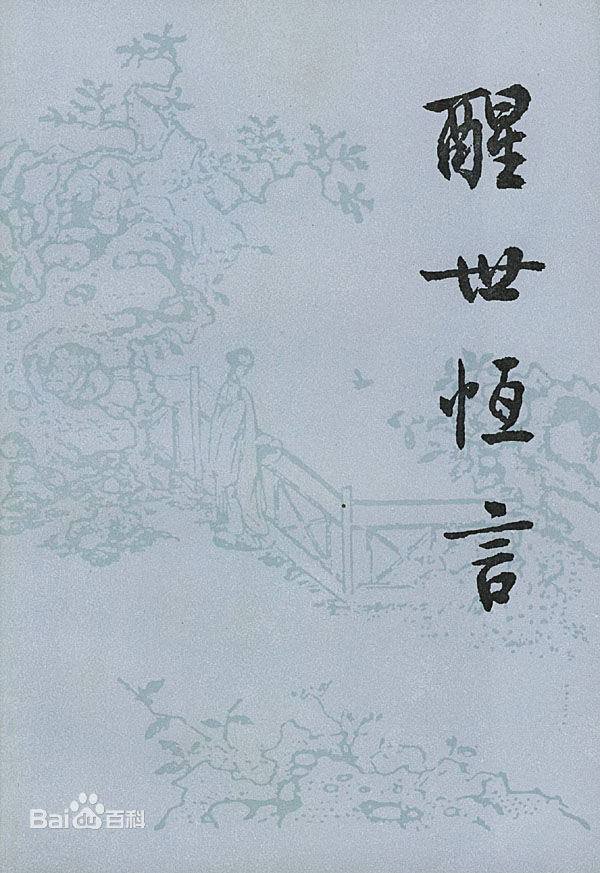 醒世恆言
Bai du 百科